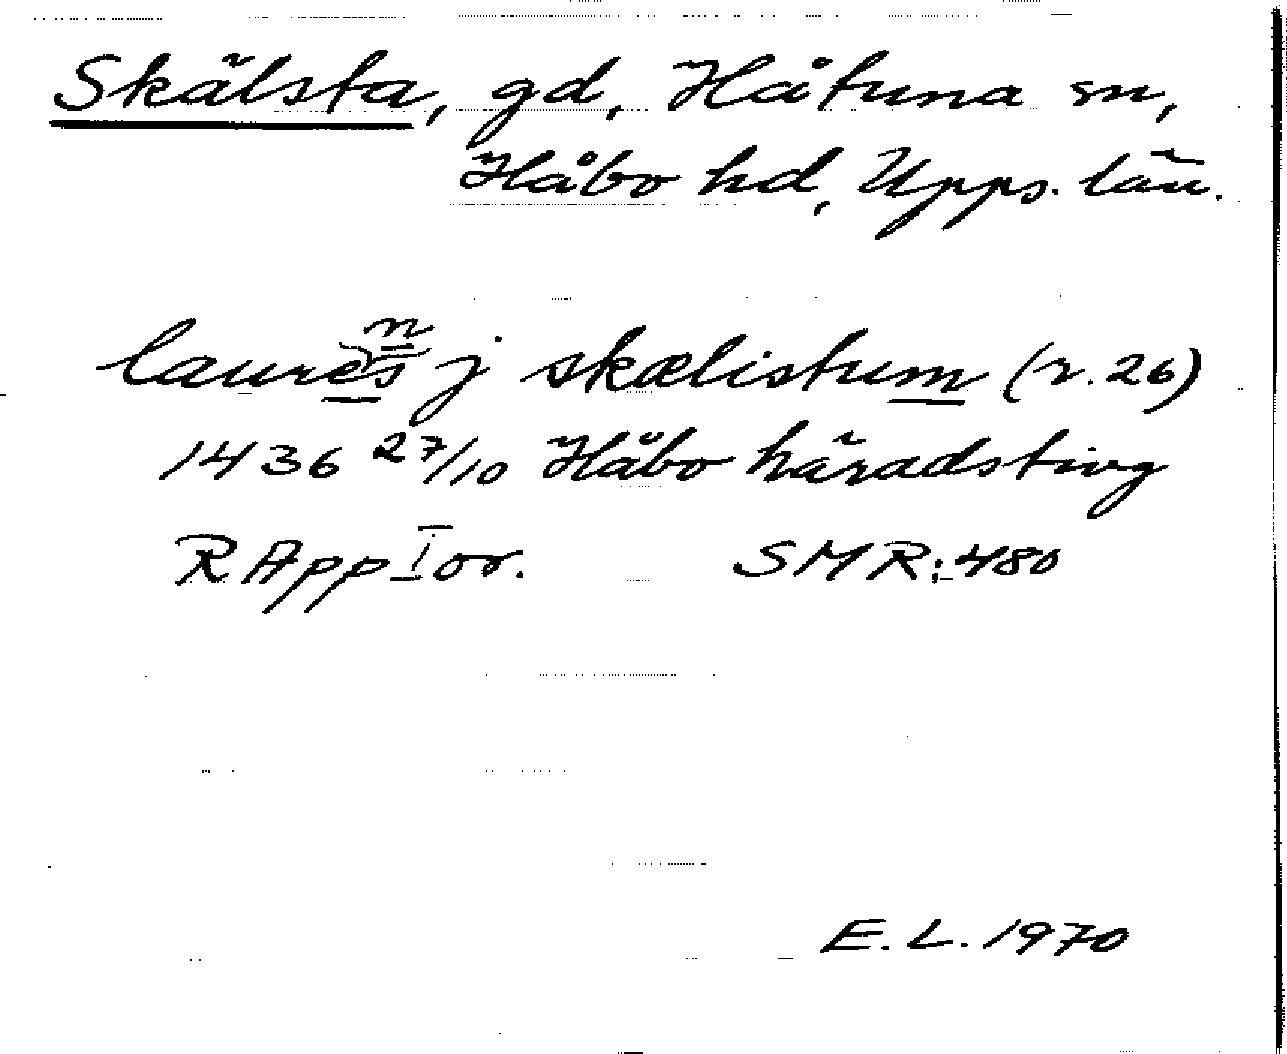 Skälsta, gd, Håtuna sn,
Håbo hd, Upps. län.
laurens j skælistum (r. 26)
1436 27/10 Håbo häradsting
RAppIor. SMR: 480
E. L. 1970